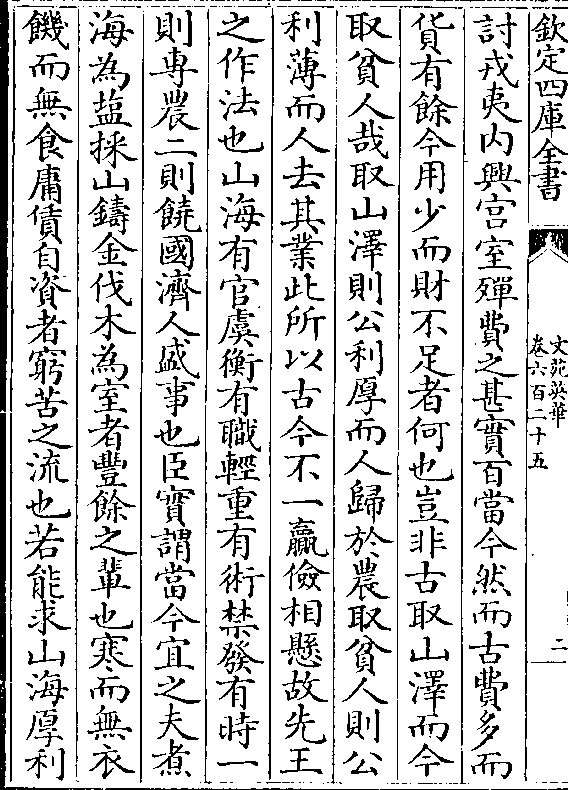 欽定四庫全書
文苑英華
卷六百二十五
二
討戎夷内興宫室殫費之甚實百當今然而古費多而
貨有餘今用少而財不足者何也豈非古取山澤而今
取貧人哉取山澤則公利厚而人歸於農取貧人則公
利薄而人去其業此所以古今不一贏儉相懸故先王
之作法也山海有官虞衡有職輕重有術禁發有時一
則專農二則饒國濟人盛事也臣實謂當今宜之夫煮
海為塩採山鑄金伐木為室者豐餘之輩也寒而無衣
饑而無食庸賃自資者窮苦之流也若能求山海厚利